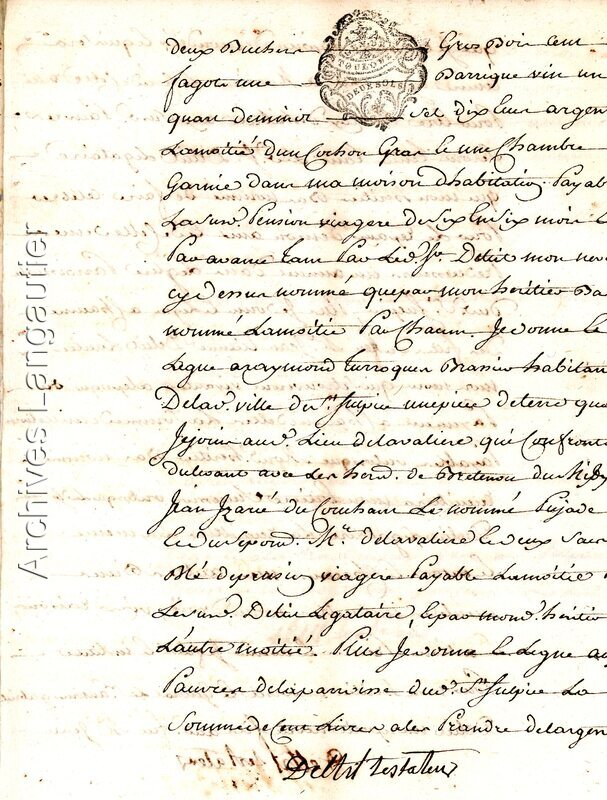 deux Buches Gros Bois cent
fagots une Barrique vin un
quart sel dix Livres argen
Lamoitié dun Cochon Gras le une Chambre
Garnie dans ma maison dhabitation Payab
Pension viagere de six En six mois
Par avance tant Par Led. Sr. Delit mon nev
cy dessus nommé que par mon heritier Ba
nommé Lamoitié Par Chacun. Je donne le
Legue a raymond turroques Brassier habitan
Delad. ville de St. Sulpice une piece de terre que
Je jouis aud. Lieu delavaliere qui Confront
du levant avec Les herd. de
Jean Izarié du Couchant Le nommé Pujade
le du Mr. delavaliere le deux Sacs
Blé de pension viagere Payable Lamoitié
Legataire, le par mond. heritie
L'autre moitié. Plus Je donne le Legue au
Pauvres dela paroisse dud. St. Sulpice La
Somme de Cent Livres a les Prandre delargen
testateur
TOULOUSE
DEUX SOLS
Archives Langautier